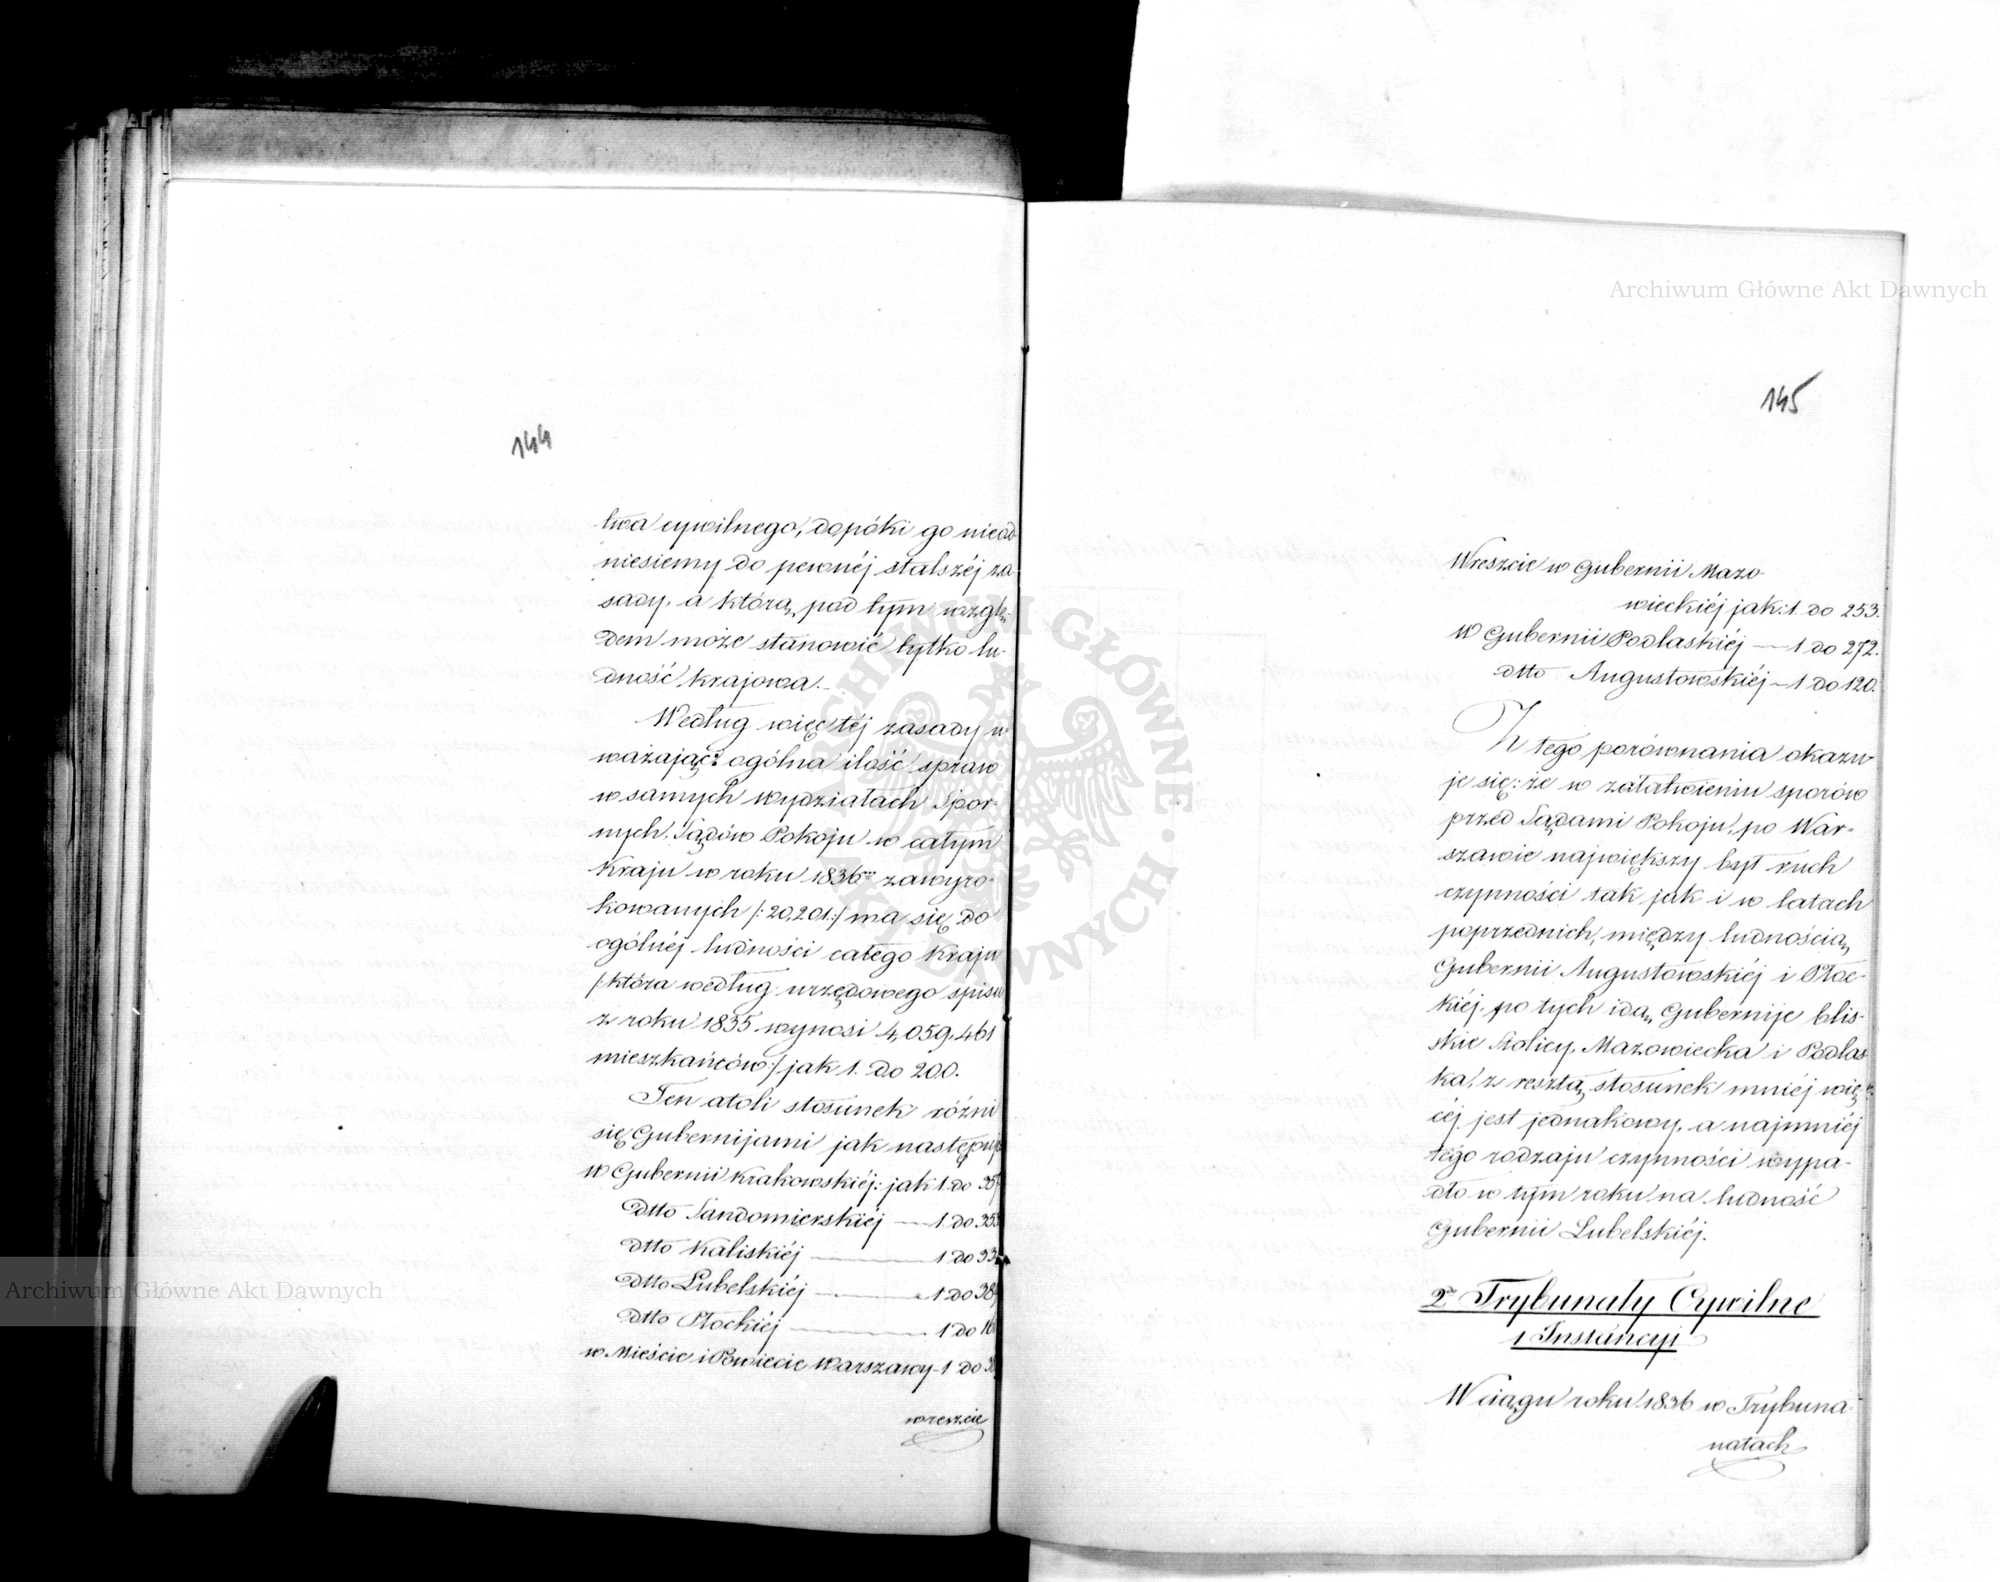 144
twa cywilnego, dopóki go nieod
niesiemy do pewnéj stalszéj za-
sady, a którą pod tym wzglę-
dem może stanowić tylko lu-
dność krajowa.
Według więc téj zasady u
ważając: ogólna ilość spraw
w samych wydziałach Spor-
nych Sądów Pokoju w całym
Kraju w roku 1836ym zawyro-
kowanych /:20,201:/ ma się do
ogólnéj ludności całego Kraju
/:która według urzędowego spisu
z roku 1835 wynosi 4,059,461
mieszkańców:/ jak 1. do 200.
Ten atoli stosunek różni
się Gubernijami jak następuje
w Gubernii Krakowskiéj: jak 1. do
dtto Sandomierskiéj — 1. do 353
dtto Kaliskiéj — 1 do
dtto Lubelskiéj — 1 do
dtto Płockiéj — 1 do
w Mieście i Powiecie Warszawy - 1 do
wreszcie
145
Wreszcie w Gubernii Mazo
wieckiéj jak: 1 do 253.
W Gubernii Podlaskiéj — 1 do 272.
dtto Augustowskiéj — 1 do 120.
Z tego porównania okazu-
je się: że w załatwieniu sporów
przed Sądami Pokoju, po War-
szawie największy był ruch
czynności tak jak i w latach
poprzednich, między ludnością
Gubernii Augustowskiéj i Płoc-
kiéj, po tych idą Gubernije blis-
skie Stolicy, Mazowiecka i Podlas
ka, z resztą stosunek mniéj wię-
céj jest jednakowy, a najmniéj
tego rodzaju czynności wypa-
dło w tym roku na ludność
Gubernii Lubelskiéj.
2º Trybunały Cywilne
1 Instancyi
W ciągu roku 1836 w Trybuna
nałach
Archiwum Główne Akt Dawnych
Archiwum Główne Akt Dawnych
ARCHIWUM GŁÓWNE AKT DAWNYCH